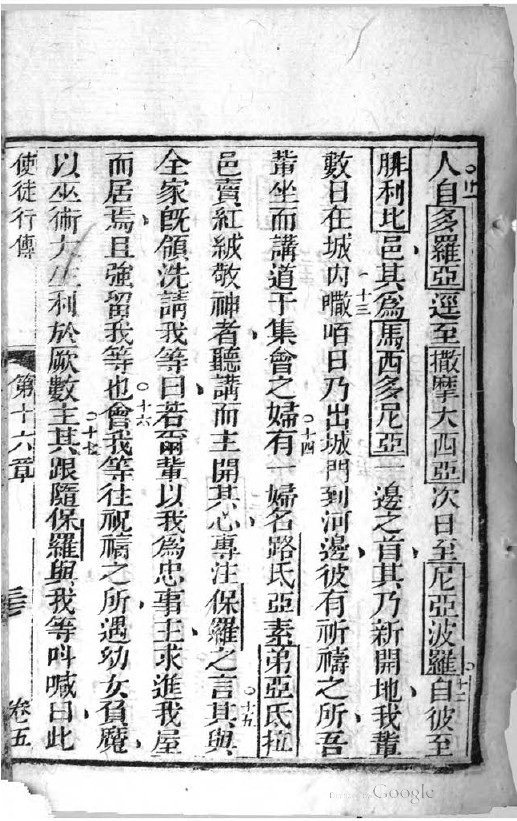 人自多羅亞逕至撒摩大西亞次日至尼亞波羅自彼至
腓利比邑其為馬西多尼亞一邊之首其乃新開地我輩
數日在城內嚫咟日乃出城門到河邊彼有祈禱之所吾
輩坐而講道于集會之婦有一婦名路氐亞素弟亞氐拉
邑賣紅絨敬神者聽講而主開其心專注保羅之言其與
全家既領洗請我等曰若爾輩以我為忠事主求進我屋
而居焉且強留我等也會我等往祝禱之所遇幼女負魔
以巫術大生利於厥數主其跟隨保羅與我等呌喊曰此
使徒行傳 第十六章 三 卷五
十一
十二
十三
十四
十五
十六
十七
Google